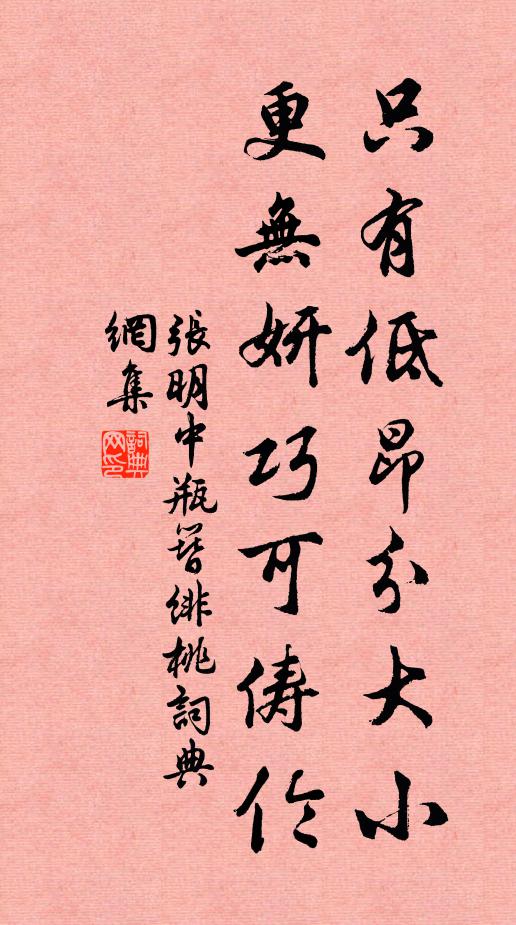 只有低昂分大小
更無妍巧可儔伶
張明中瓶簪緋桃詞典
網集
詞典
网印